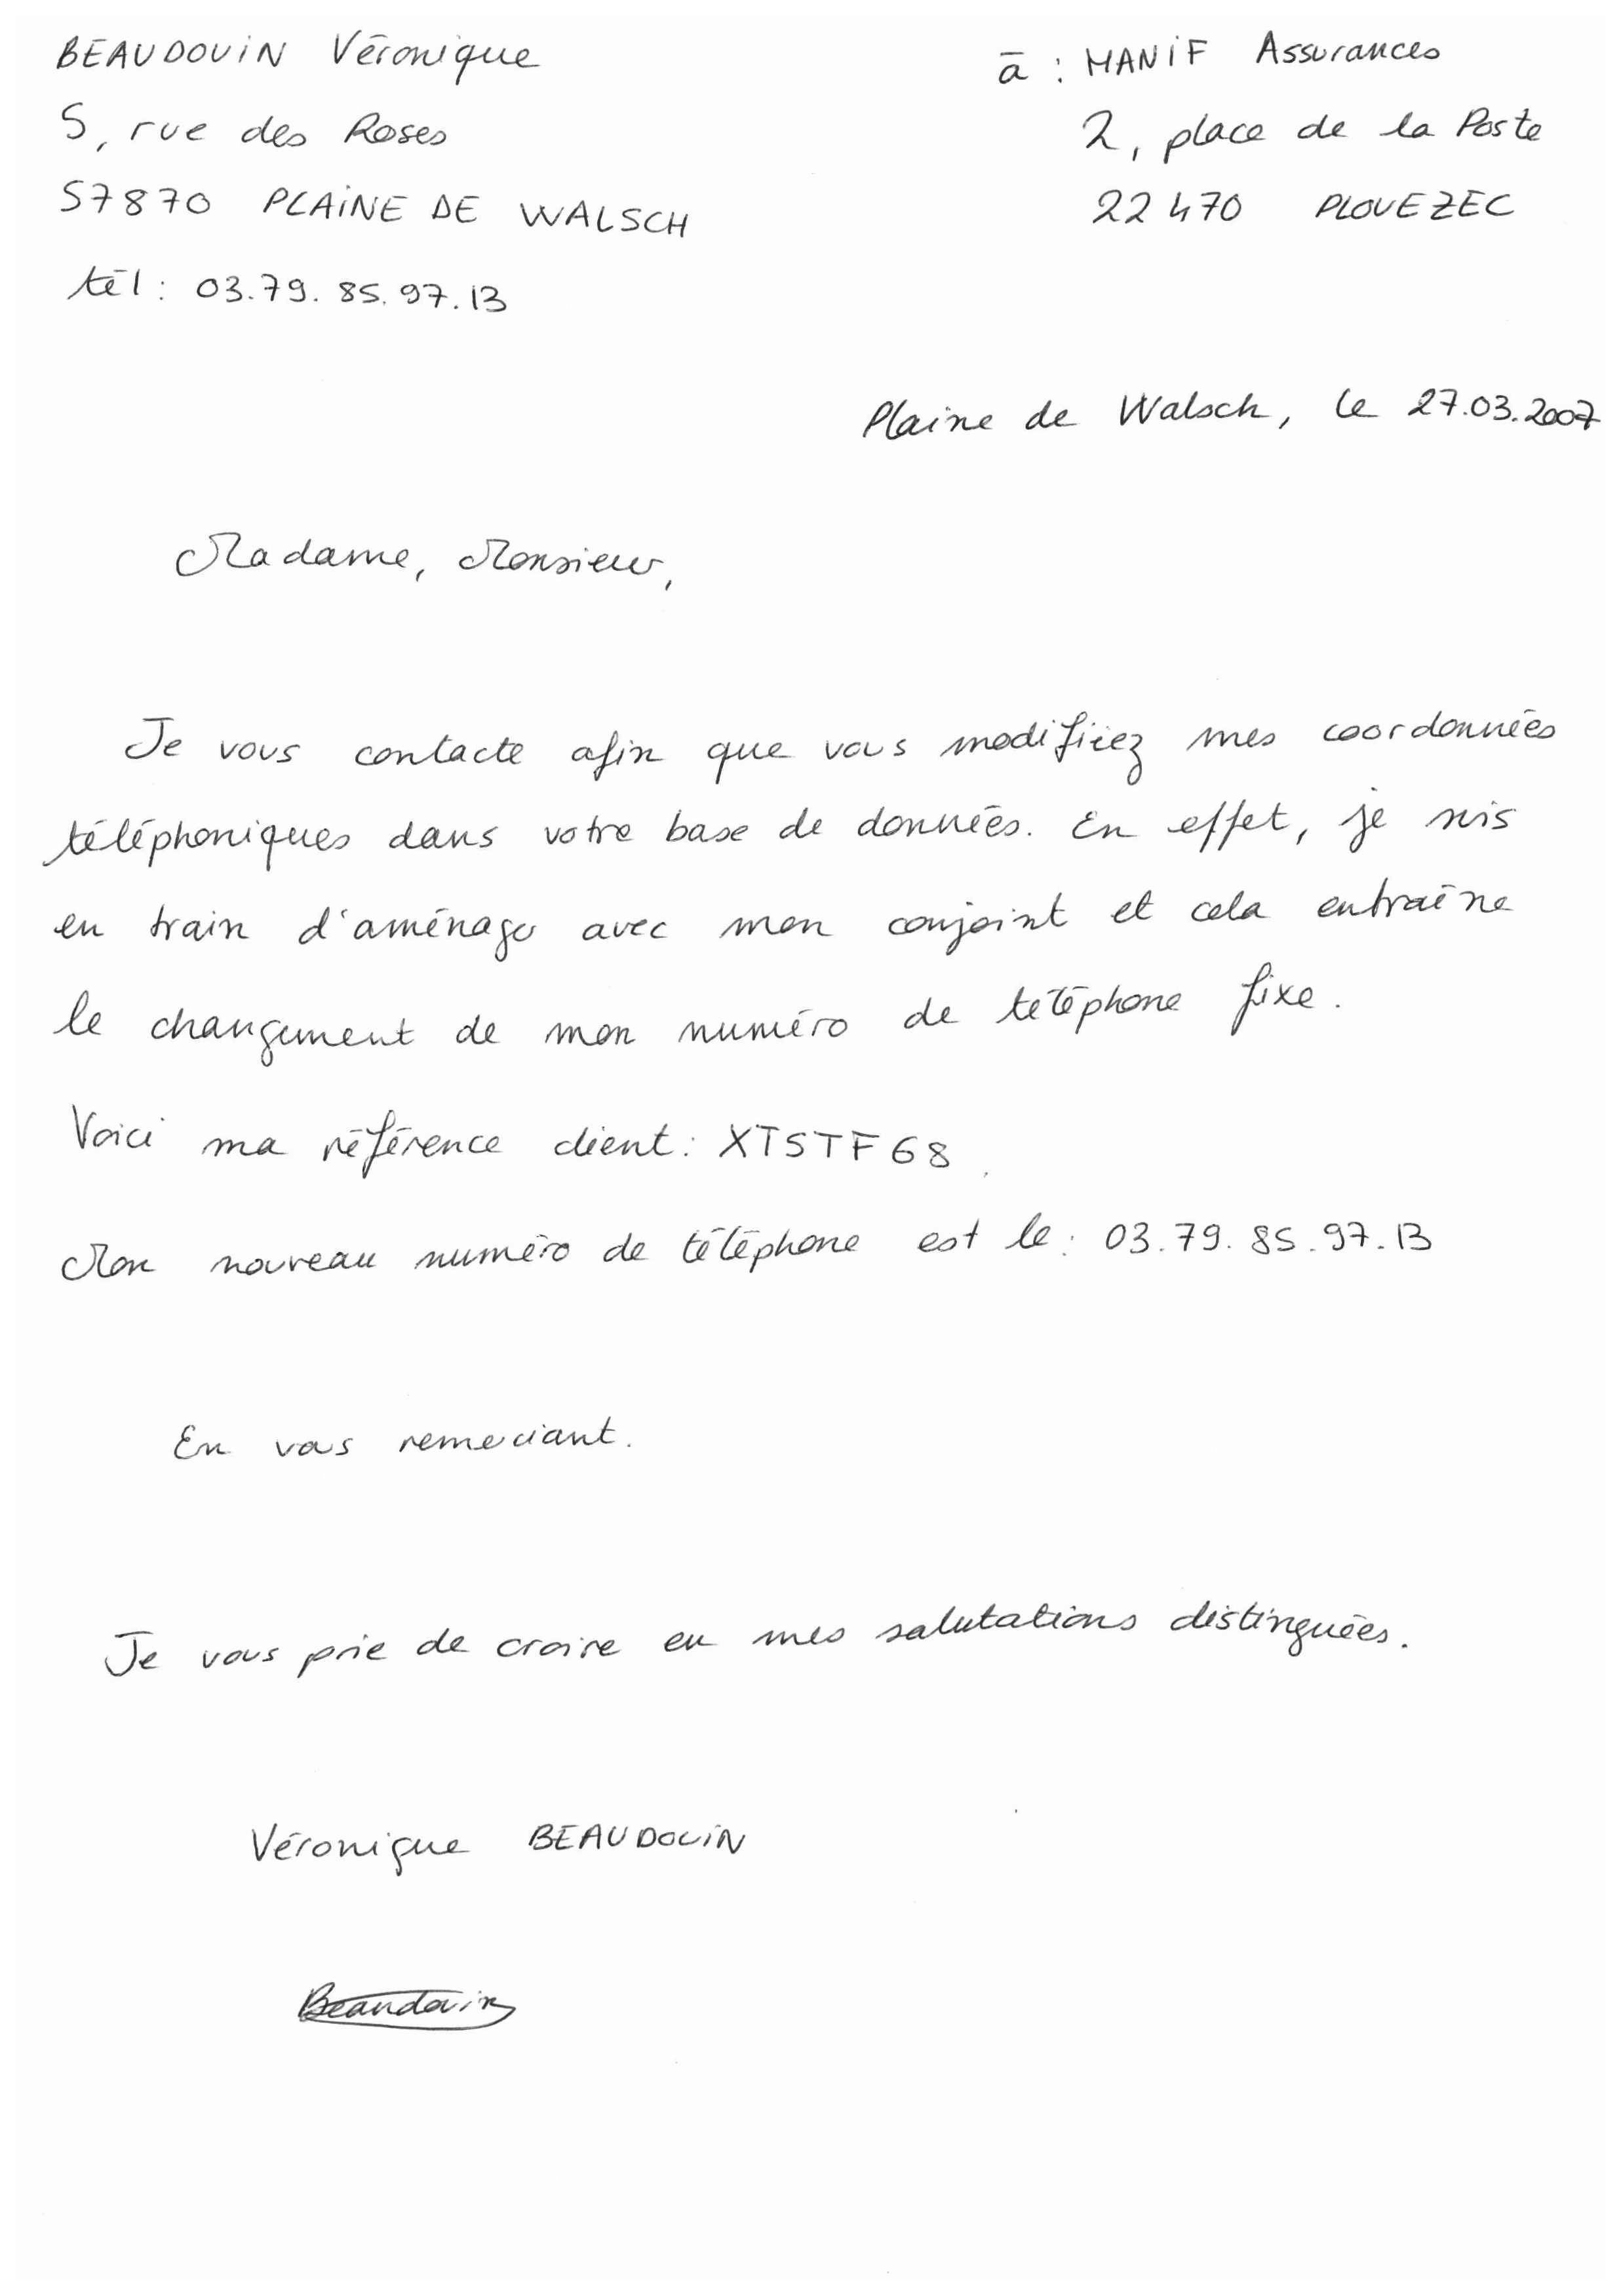 BEAUDOUIN Véronique
5, rue des Roses
57870 PLAINE DE WALSCH
tél : 03.79.85.97.13
à : MANIF Assurances
2, place de la Poste
22470 PLOUEZEC
Plaine de Walsch, le 27.03.2007
Madame, Monsieur,
Je vous contacte afin que vous modifiiez mes coordonnées
téléphoniques dans votre base de données. En effet, je suis
en train d'aménager avec mon conjoint et cela entraîne
le changement de mon numéro de téléphone fixe.
Voici ma référence client : XTSTF68.
Mon nouveau numéro de téléphone est le : 03.79.85.97.13
En vous remerciant.
Je vous prie de croire en mes salutations distinguées.
Véronique BEAUDOUIN
Beaudouin